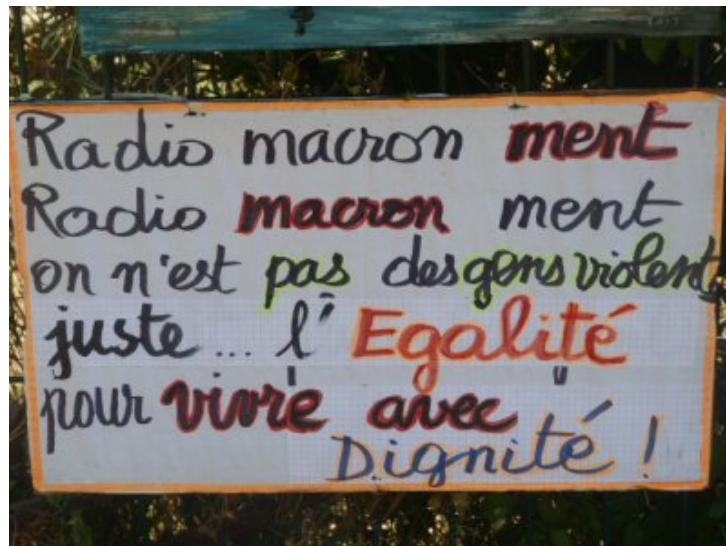 Radio macron ment
Radio macron ment
on n'est pas des gens violents
juste... l'Egalité
pour "vivre avec"
Dignité !